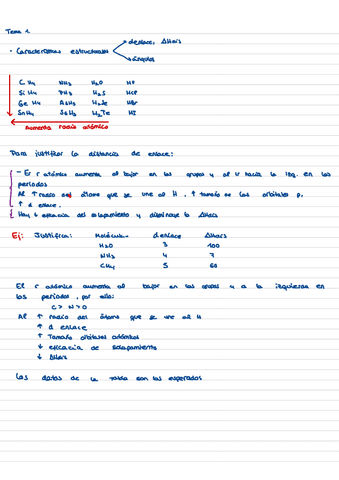 Tema 1.
• Características estructurales
d enlace, ΔHdis
ángulos
CH4 NH3 H2O HF
SiH4 PH3 H2S HCl
GeH4 AsH3 H2Se HBr
SnH4 SbH3 H2Te HI
aumenta radio atómico
Para justificar la distancia de enlace:
- El r atómico aumenta al bajar en los grupos y al ir hacia la izq. en los
períodos
Al ↑ radio del átomo que se une al H, ↑ tamaño de los orbitales p,
↑ d enlace.
Hay ↓ eficacia del solapamiento y disminuye la ΔHdis
Ej: Justifica: Molécula d enlace ΔHdis
H2O 3 100
NH3 4 7
CH4 5 60
El r atómico aumenta al bajar en los grupos y a la izquierda en
los períodos, por ello:
C > N > O
Al ↑ radio del átomo que se une al H
↑ d enlace
↑ Tamaño orbitales atómicos
↓ eficacia de solapamiento
↓ ΔHdis
Los datos de la tabla son los esperados